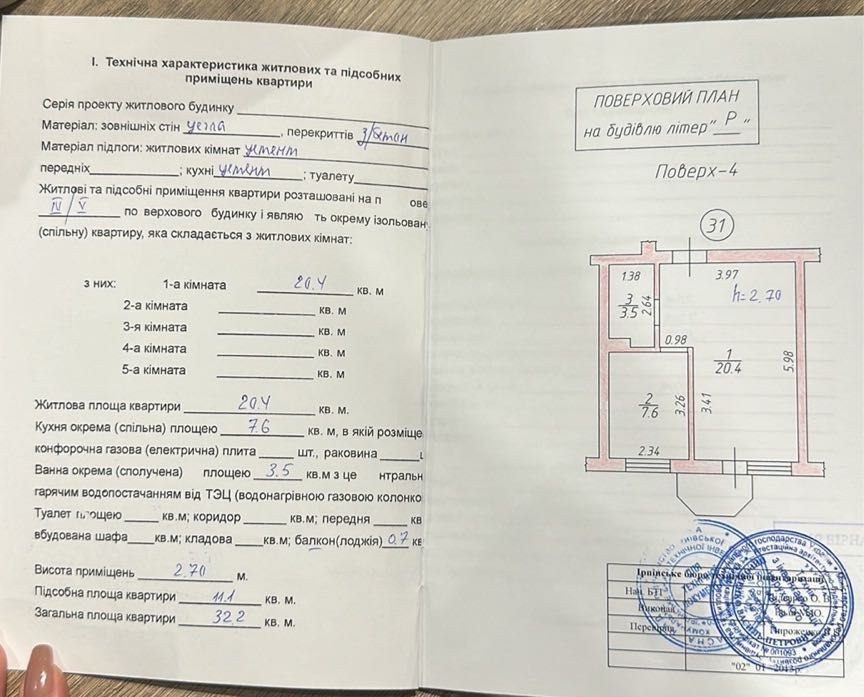 І. Технічна характеристика житлових та підсобних
приміщень квартири
Серія проекту житлового будинку
Матеріал: зовнішніх стін цегла, перекриттів з/бетон
Матеріал підлоги: житлових кімнат цемент
передніх ; кухні цемент ; туалету
Житлові та підсобні приміщення квартири розташовані на п ове
IV/V по верхового будинку і являю ть окрему ізольован
(спільну) квартиру, яка складається з житлових кімнат:
з них: 1-а кімната 20.4 кв. м
2-а кімната кв. м
3-я кімната кв. м
4-а кімната кв. м
5-а кімната кв. м
Житлова площа квартири 20.4 кв. м.
Кухня окрема (спільна) площею 7.6 кв. м, в якій розміще
конфорочна газова (електрична) плита шт., раковина
Ванна окрема (сполучена) площею 3.5 кв.м з це нтральн
гарячим водопостачанням від ТЭЦ (водонагрівною газовою колонко
Туалет площею кв.м; коридор кв.м; передня кв
вбудована шафа кв.м; кладова кв.м; балкон(лоджія) 0.7 кв
Висота приміщень 2.70 м.
Підсобна площа квартири 11.1 кв. м.
Загальна площа квартири 32.2 кв. м.
ПОВЕРХОВИЙ ПЛАН
на будівлю літер "Р"
Поверх-4
31
1.38
3.97
h=2.70
3
3.5
2.64
0.98
1
20.4
5.98
2
7.6
3.26
3.41
2.34
Ірпінське бюро технічної інвентаризації
Нач. БТІ
Виконав
Перевірив
"02" 01 2013р.